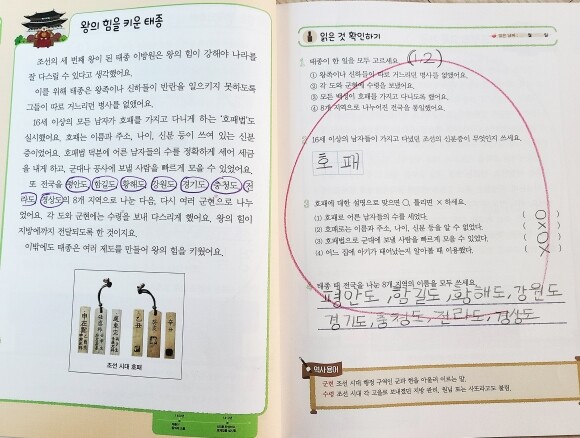 왕의 힘을 키운 태종
조선의 세 번째 왕이 된 태종 이방원은 왕의 힘이 강해야 나라를
잘 다스릴 수 있다고 생각했어요.
이를 위해 태종은 왕족이나 신하들이 반란을 일으키지 못하도록
그들이 따로 거느리던 병사를 없앴어요.
16세 이상의 모든 남자가 호패를 가지고 다니게 하는 '호패법'도
실시했어요. 호패는 이름과 주소, 나이, 신분 등이 쓰여 있는 신분
증이었어요. 호패법 덕분에 어른 남자들의 수를 정확하게 세어 세금
을 내게 하고, 군대나 공사에 보낼 사람을 빠르게 모을 수 있었어요.
또 전국을 평안도, 함길도, 황해도, 강원도, 경기도, 충청도, 전
라도, 경상도의 8개 지역으로 나눈 다음, 다시 여러 군현으로 나누
었어요. 각 도와 군현에는 수령을 보내 다스리게 했어요. 왕의 힘이
지방에까지 전달되도록 한 것이지요.
이밖에도 태종은 여러 제도를 만들어 왕의 힘을 키웠어요.
조선 시대 호패
읽은 것 확인하기
월 일
1 태종이 한 일을 모두 고르세요. (1,2)
① 왕족이나 신하들이 따로 거느리던 병사를 없앴어요.
② 각 도와 군현에 수령을 보냈어요.
③ 모든 백성이 호패를 가지고 다니도록 했어요.
④ 8개 지역으로 나누어진 전국을 통일했어요.
2 16세 이상의 남자들이 가지고 다녔던 조선의 신분증이 무엇인지 쓰세요.
호 패
3 호패에 대한 설명으로 맞으면 ○, 틀리면 × 하세요.
(1) 호패로 어른 남자들의 수를 세었다. ( ○ )
(2) 호패로는 이름과 주소, 나이, 신분 등을 알 수 없었다. ( × )
(3) 호패법으로 군대에 보낼 사람을 빠르게 모을 수 있었다. ( ○ )
(4) 어느 집에 아기가 태어났는지 알아볼 때 이용했다. ( × )
4 태종 때 전국을 나눈 8개 지역의 이름을 모두 쓰세요.
평안도, 함길도, 황해도, 강원도
경기도, 충청도, 전라도, 경상도
역사 용어
군현 조선 시대 행정 구역인 군과 현을 아울러 이르는 말.
수령 조선 시대 각 고을로 보내졌던 지방 관리. 원님 또는 사또라고도 불림.